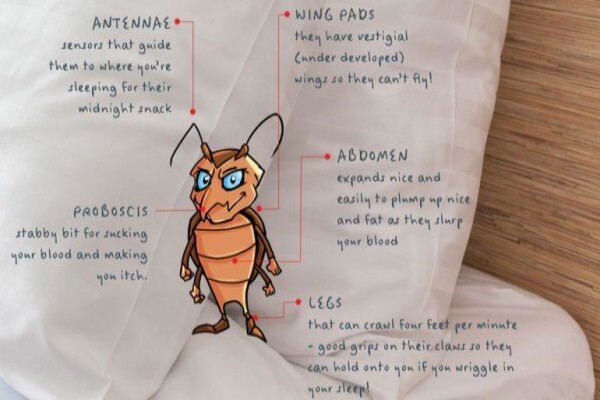 ANTENNAE
sensors that guide
them to where you're
sleeping for their
midnight snack
WING PADS
they have vestigial
(under developed)
wings so they can't fly!
ABDOMEN
expands nice and
easily to plump up nice
and fat as they slurp
your blood
PROBOSCIS
stabby bit for sucking
your blood and making
you itch.
LEGS
that can crawl four feet per minute
- good grips on their claws so they
can hold onto you if you wriggle in
your sleep!